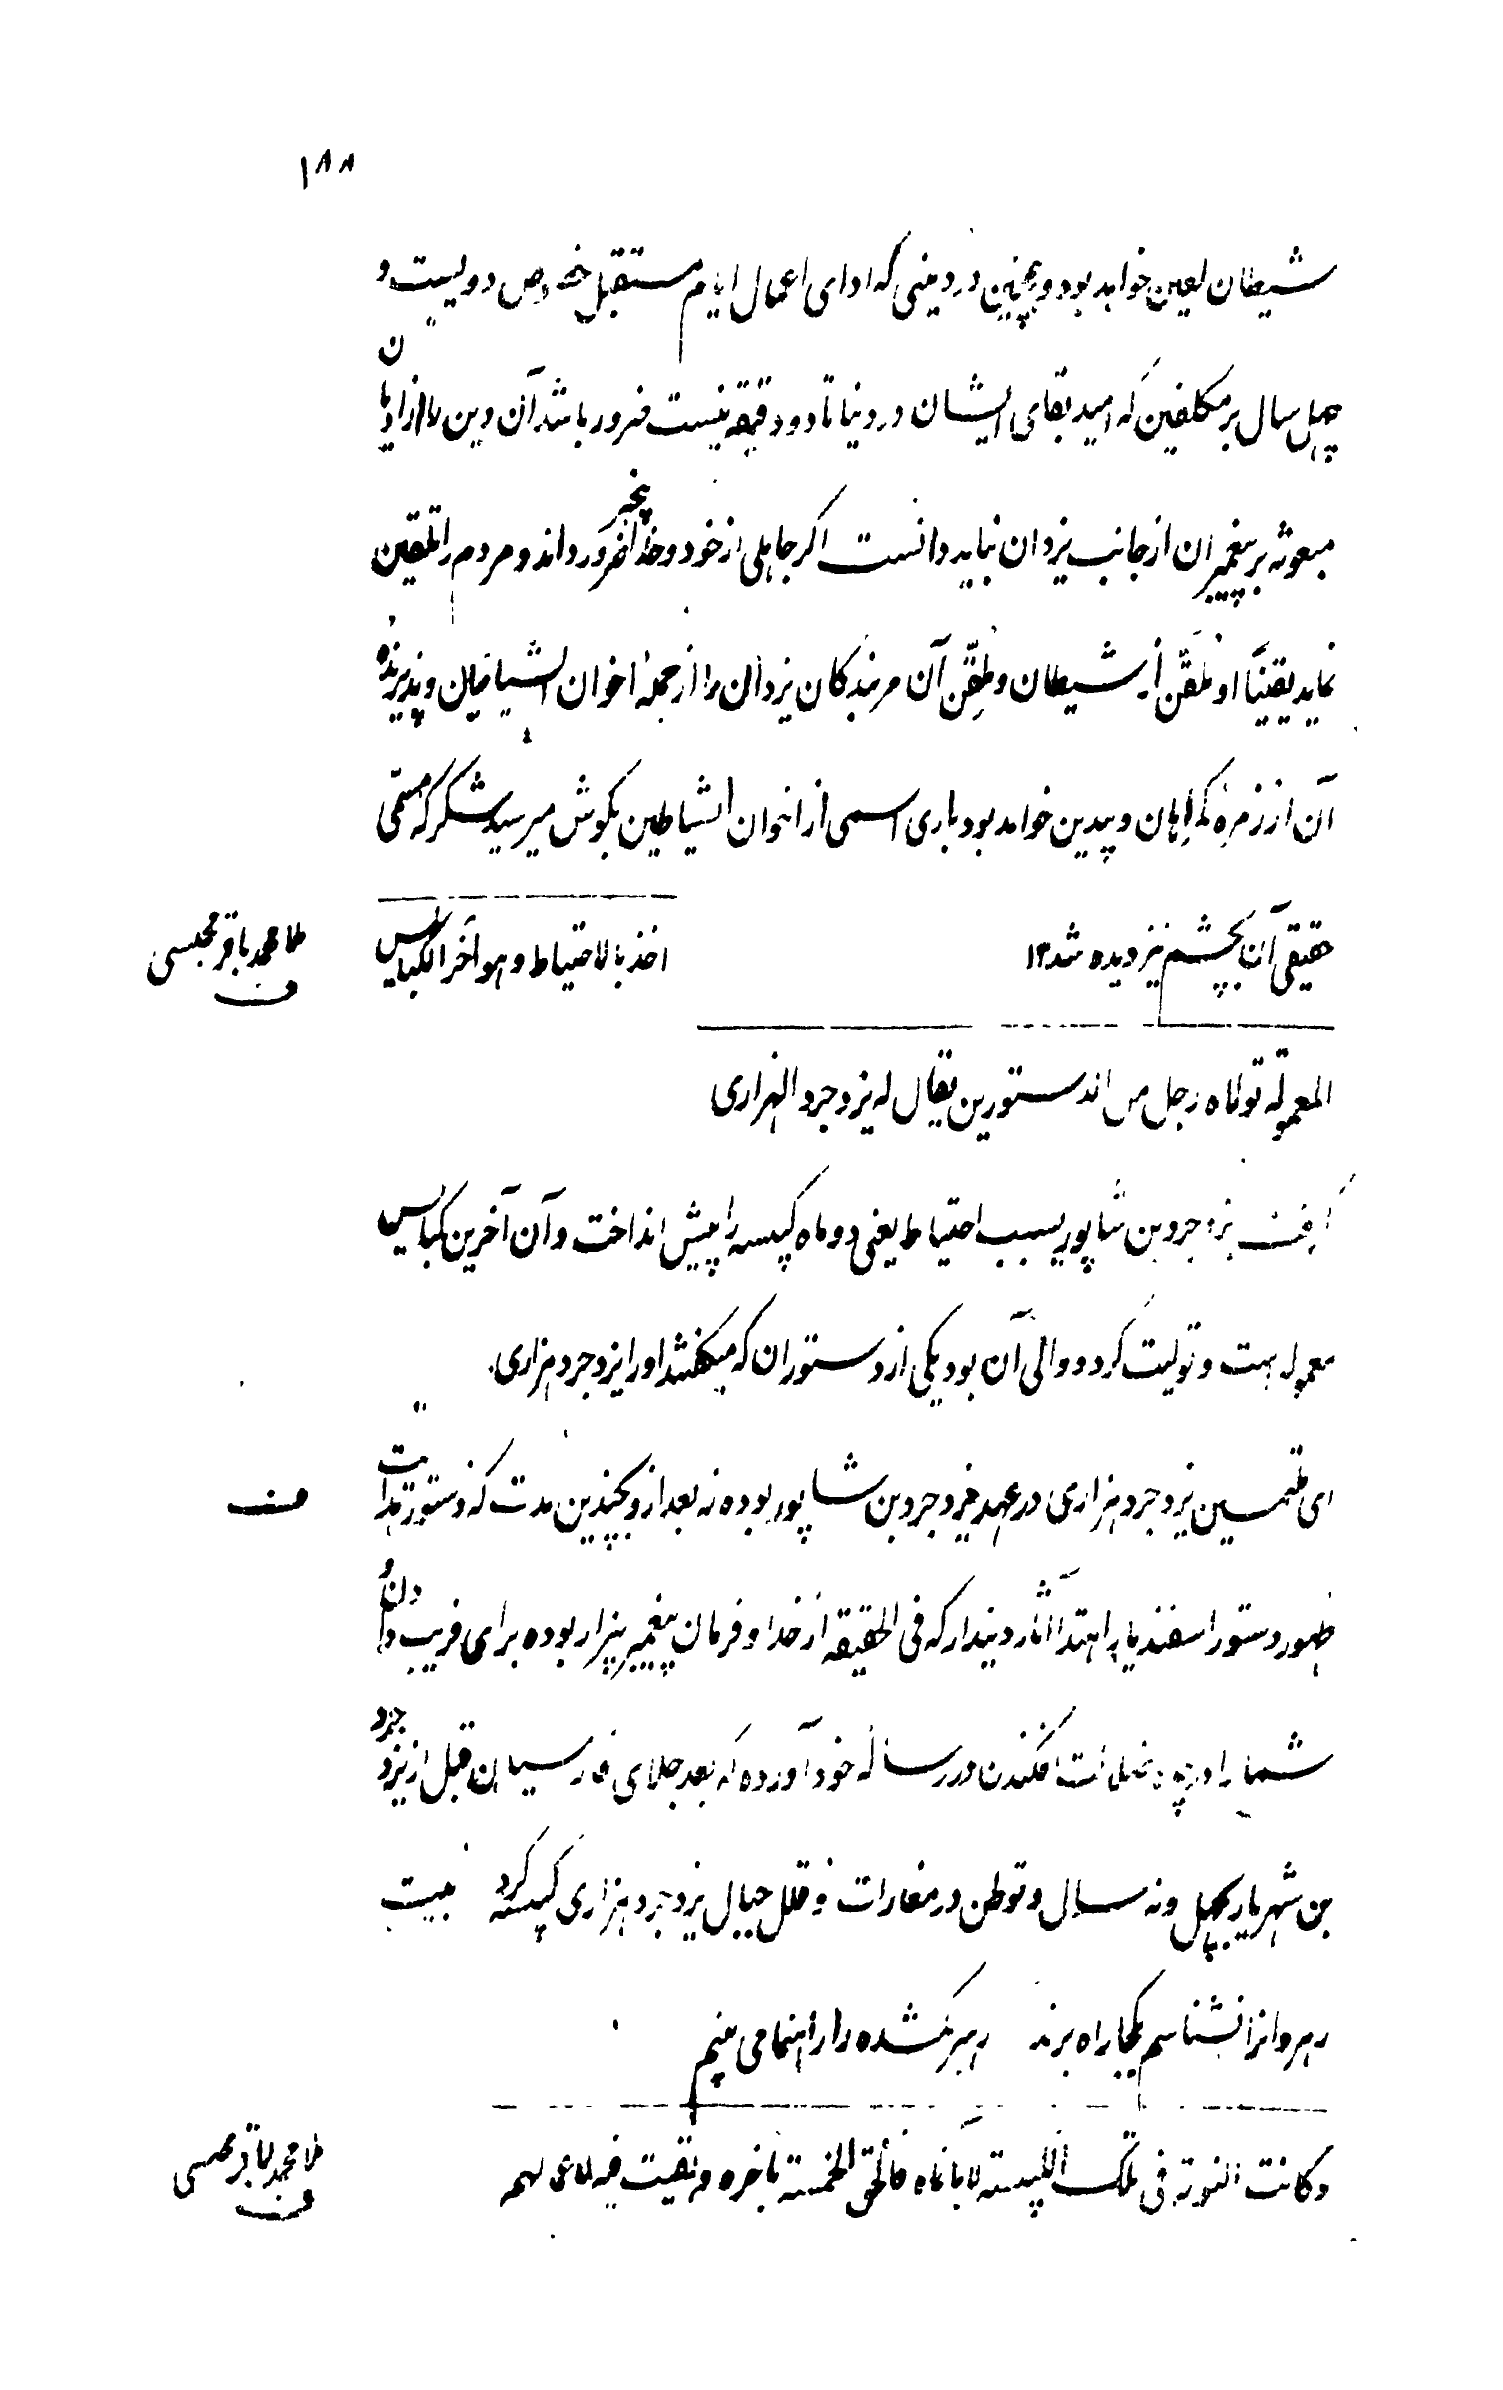 ۱۸۸
شیطان لعین خواهد بود و همچنین در دینی که ادای اعمال ایام مستقبل خصوص دویست و
چهل سال بر مکلفین که امید بقای ایشان در دنیا تا دو دقیقه نیست ضرور باشد آن دین را از ادیان
مبعوثه بر پیغمبران از جانب یزدان نباید دانست اکر جاهلی از خود و خدا بیخبر ضرور داند و مردم را تلقین
نماید یقیناً او ملقّن از شیطان و ملقِّن آن مر بندکان یزدان را از جملهٔ اخوان الشیاطین و پذیرندهٔ
آن از زمرهٔ کمراهان و بیدین خواهد بود باری اسمی از اخوان الشیاطین بکوش میرسید شکر که مسمّی
حقیقی آن بچشم نیز دیده شد ۱۲
اخذ بالاحتیاط و هو آخر الکبایس
ملا محمد باقر مجلسی
المعمولة تولاه رجل من الدستورین یقال له یزدجرد الهزاری
یزدجرد بن شاپور بسبب احتیاط یعنی دو ماه کپیسه را پیش انداخت و آن آخرین کبایس
معموله است و تولیت کرد و والی آن بود یکی از دستوران که میکفتند او را یزدجرد هزاری
ای ملتمسین یزدجرد هزاری در عهد یزدجرد بن شاپور بوده نه بعد از و بچندین مدت که دستور هدایت
ظهور دستور اسفندیار اهتدا آثار دیندار که فی الحقیقه از خدا و فرمان پیغمبر بیزار بوده برای فریب دادن و
شما را در چاه ضلالت افکندن در رسالهٔ خود آورده که بعد جلای فارسیان قبل از یزدجرد
بن شهریار بچهل و نه سال و توطن در مغارات و قلل جبال یزدجرد هزاری کپیسه کرد بیت
رهروانرا نشناسم بکجا راه برند رهبر کمشده را راهنما می بینم
و کانت النوبة فی تلک الکپیسته لابانماه فالحق الخمسته بآخره و بقیت فیه
ملا محمد باقر مجلسی